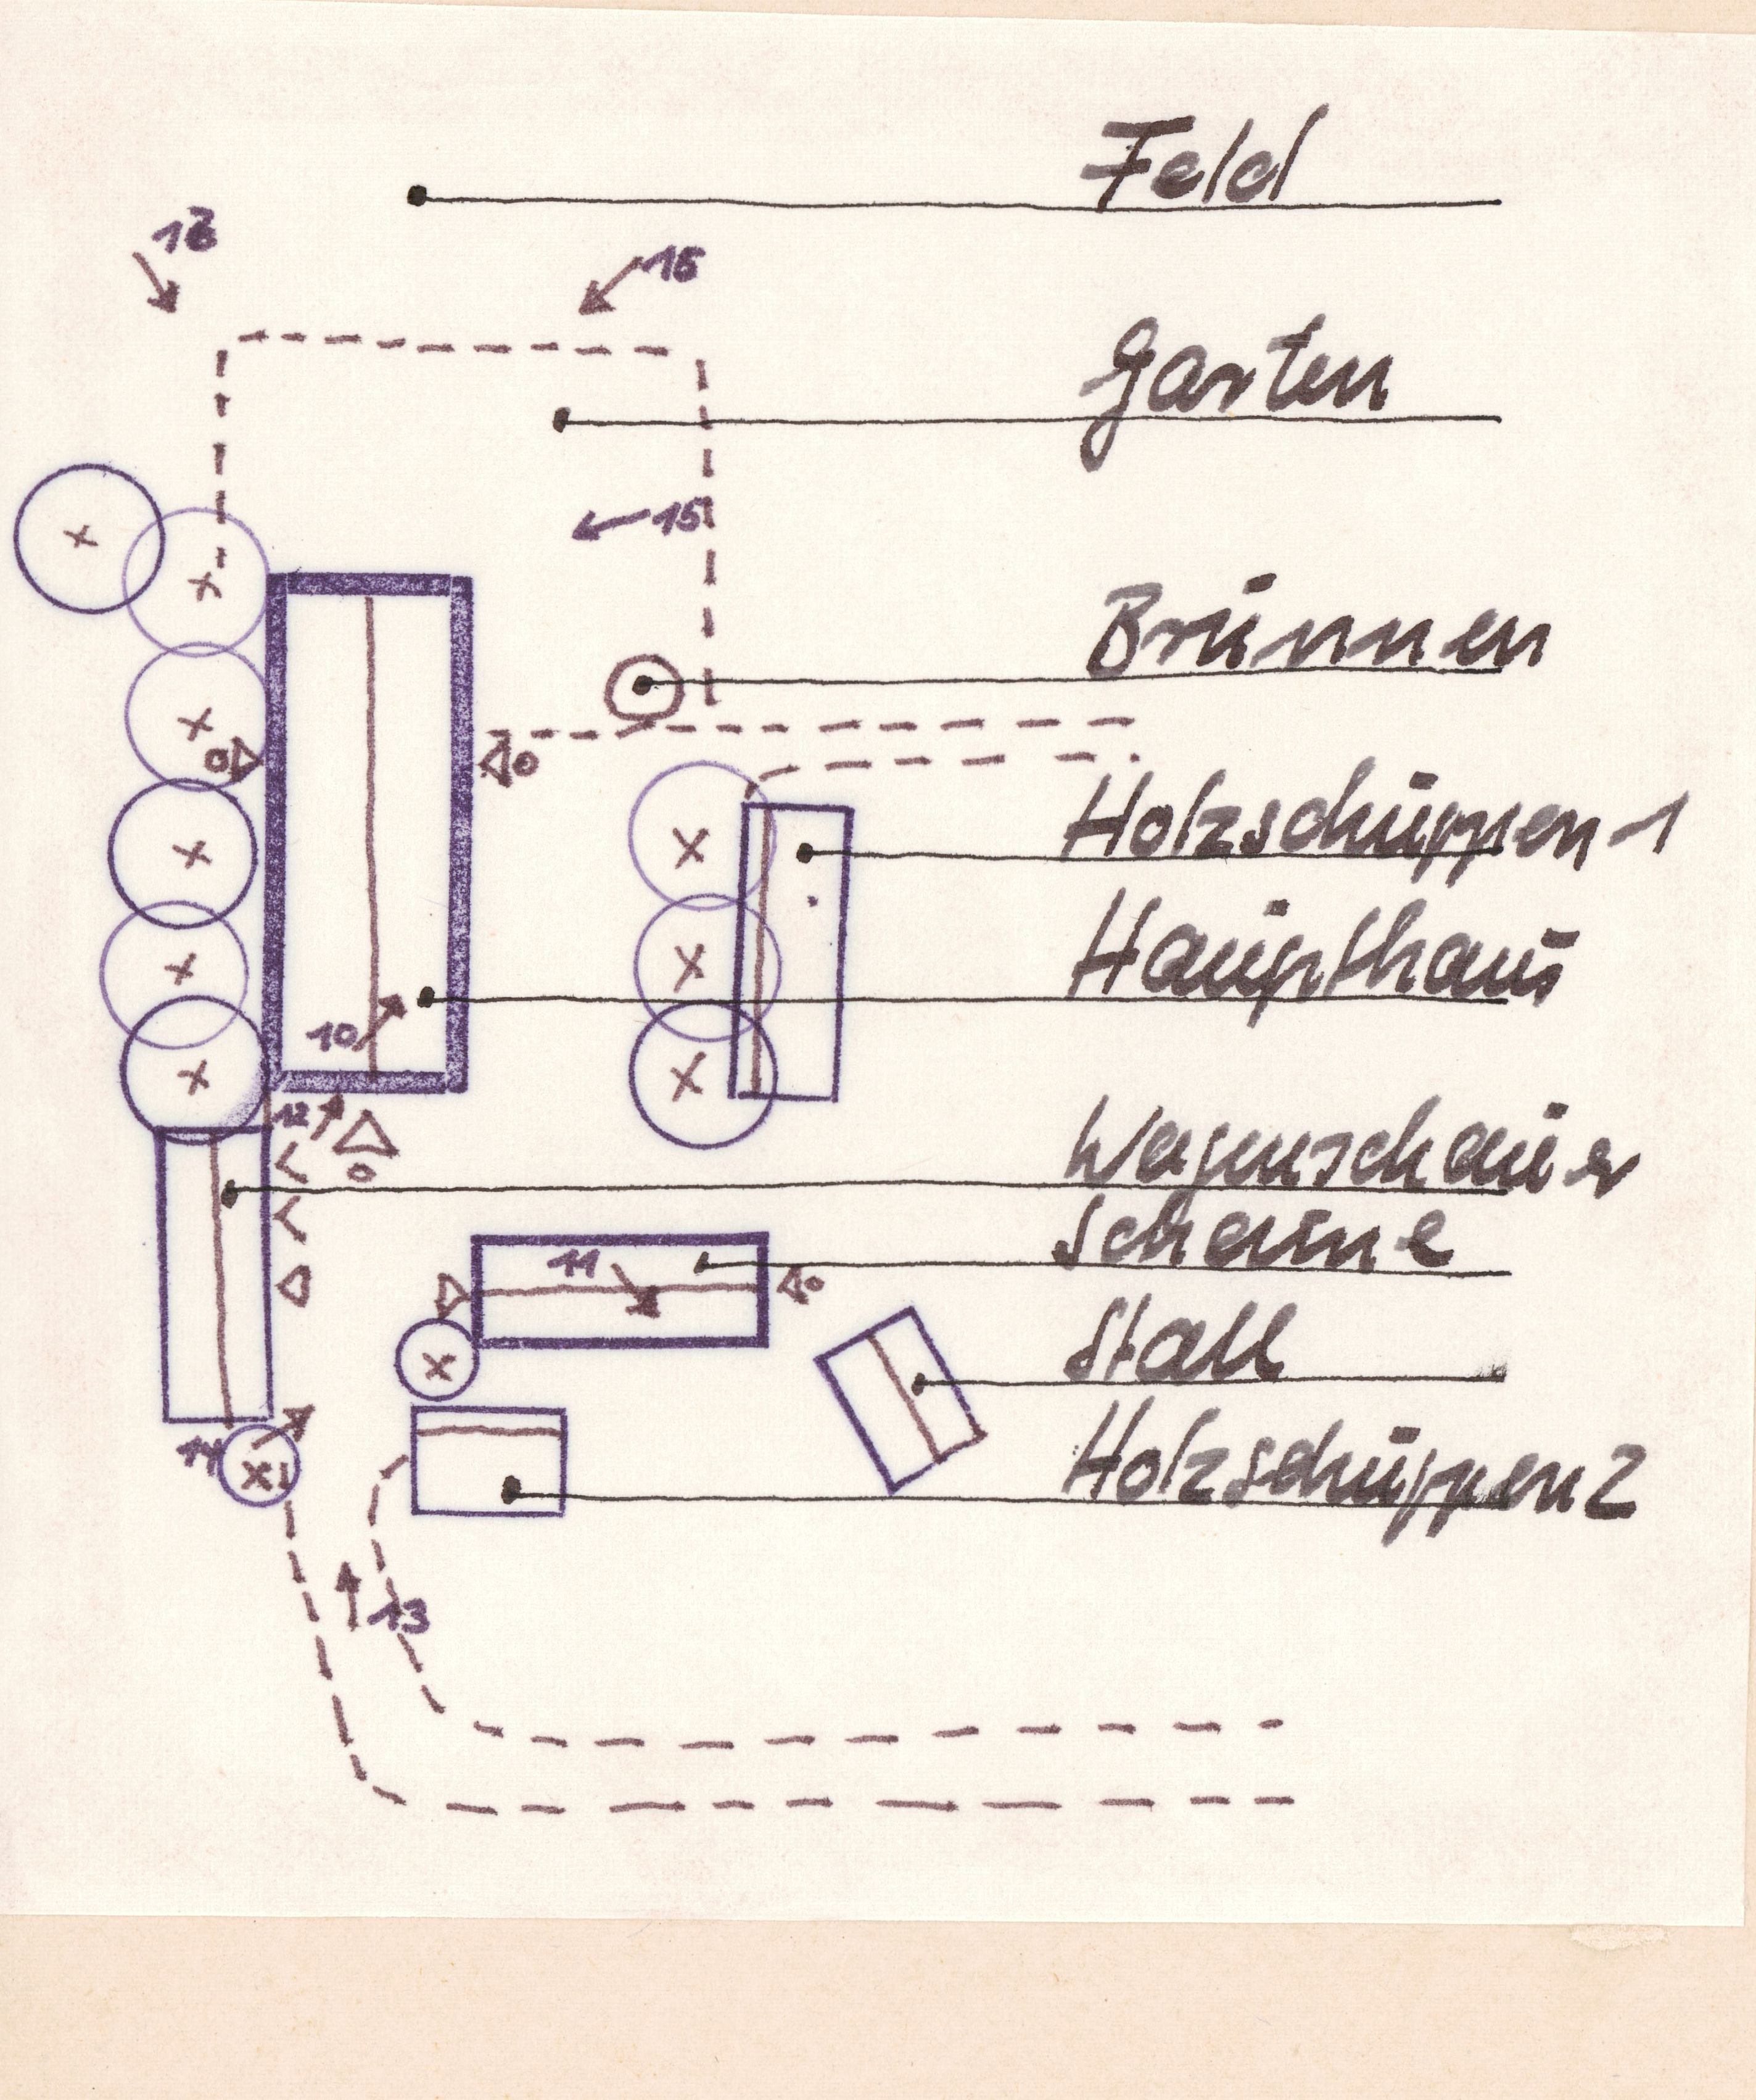 Feld
18
16
Garten
15
Brunnen
Holzschuppen-1
Haupthaus
10
12
Wagenschauer
Scheune
11
Stall
14
Holzschuppen 2
13